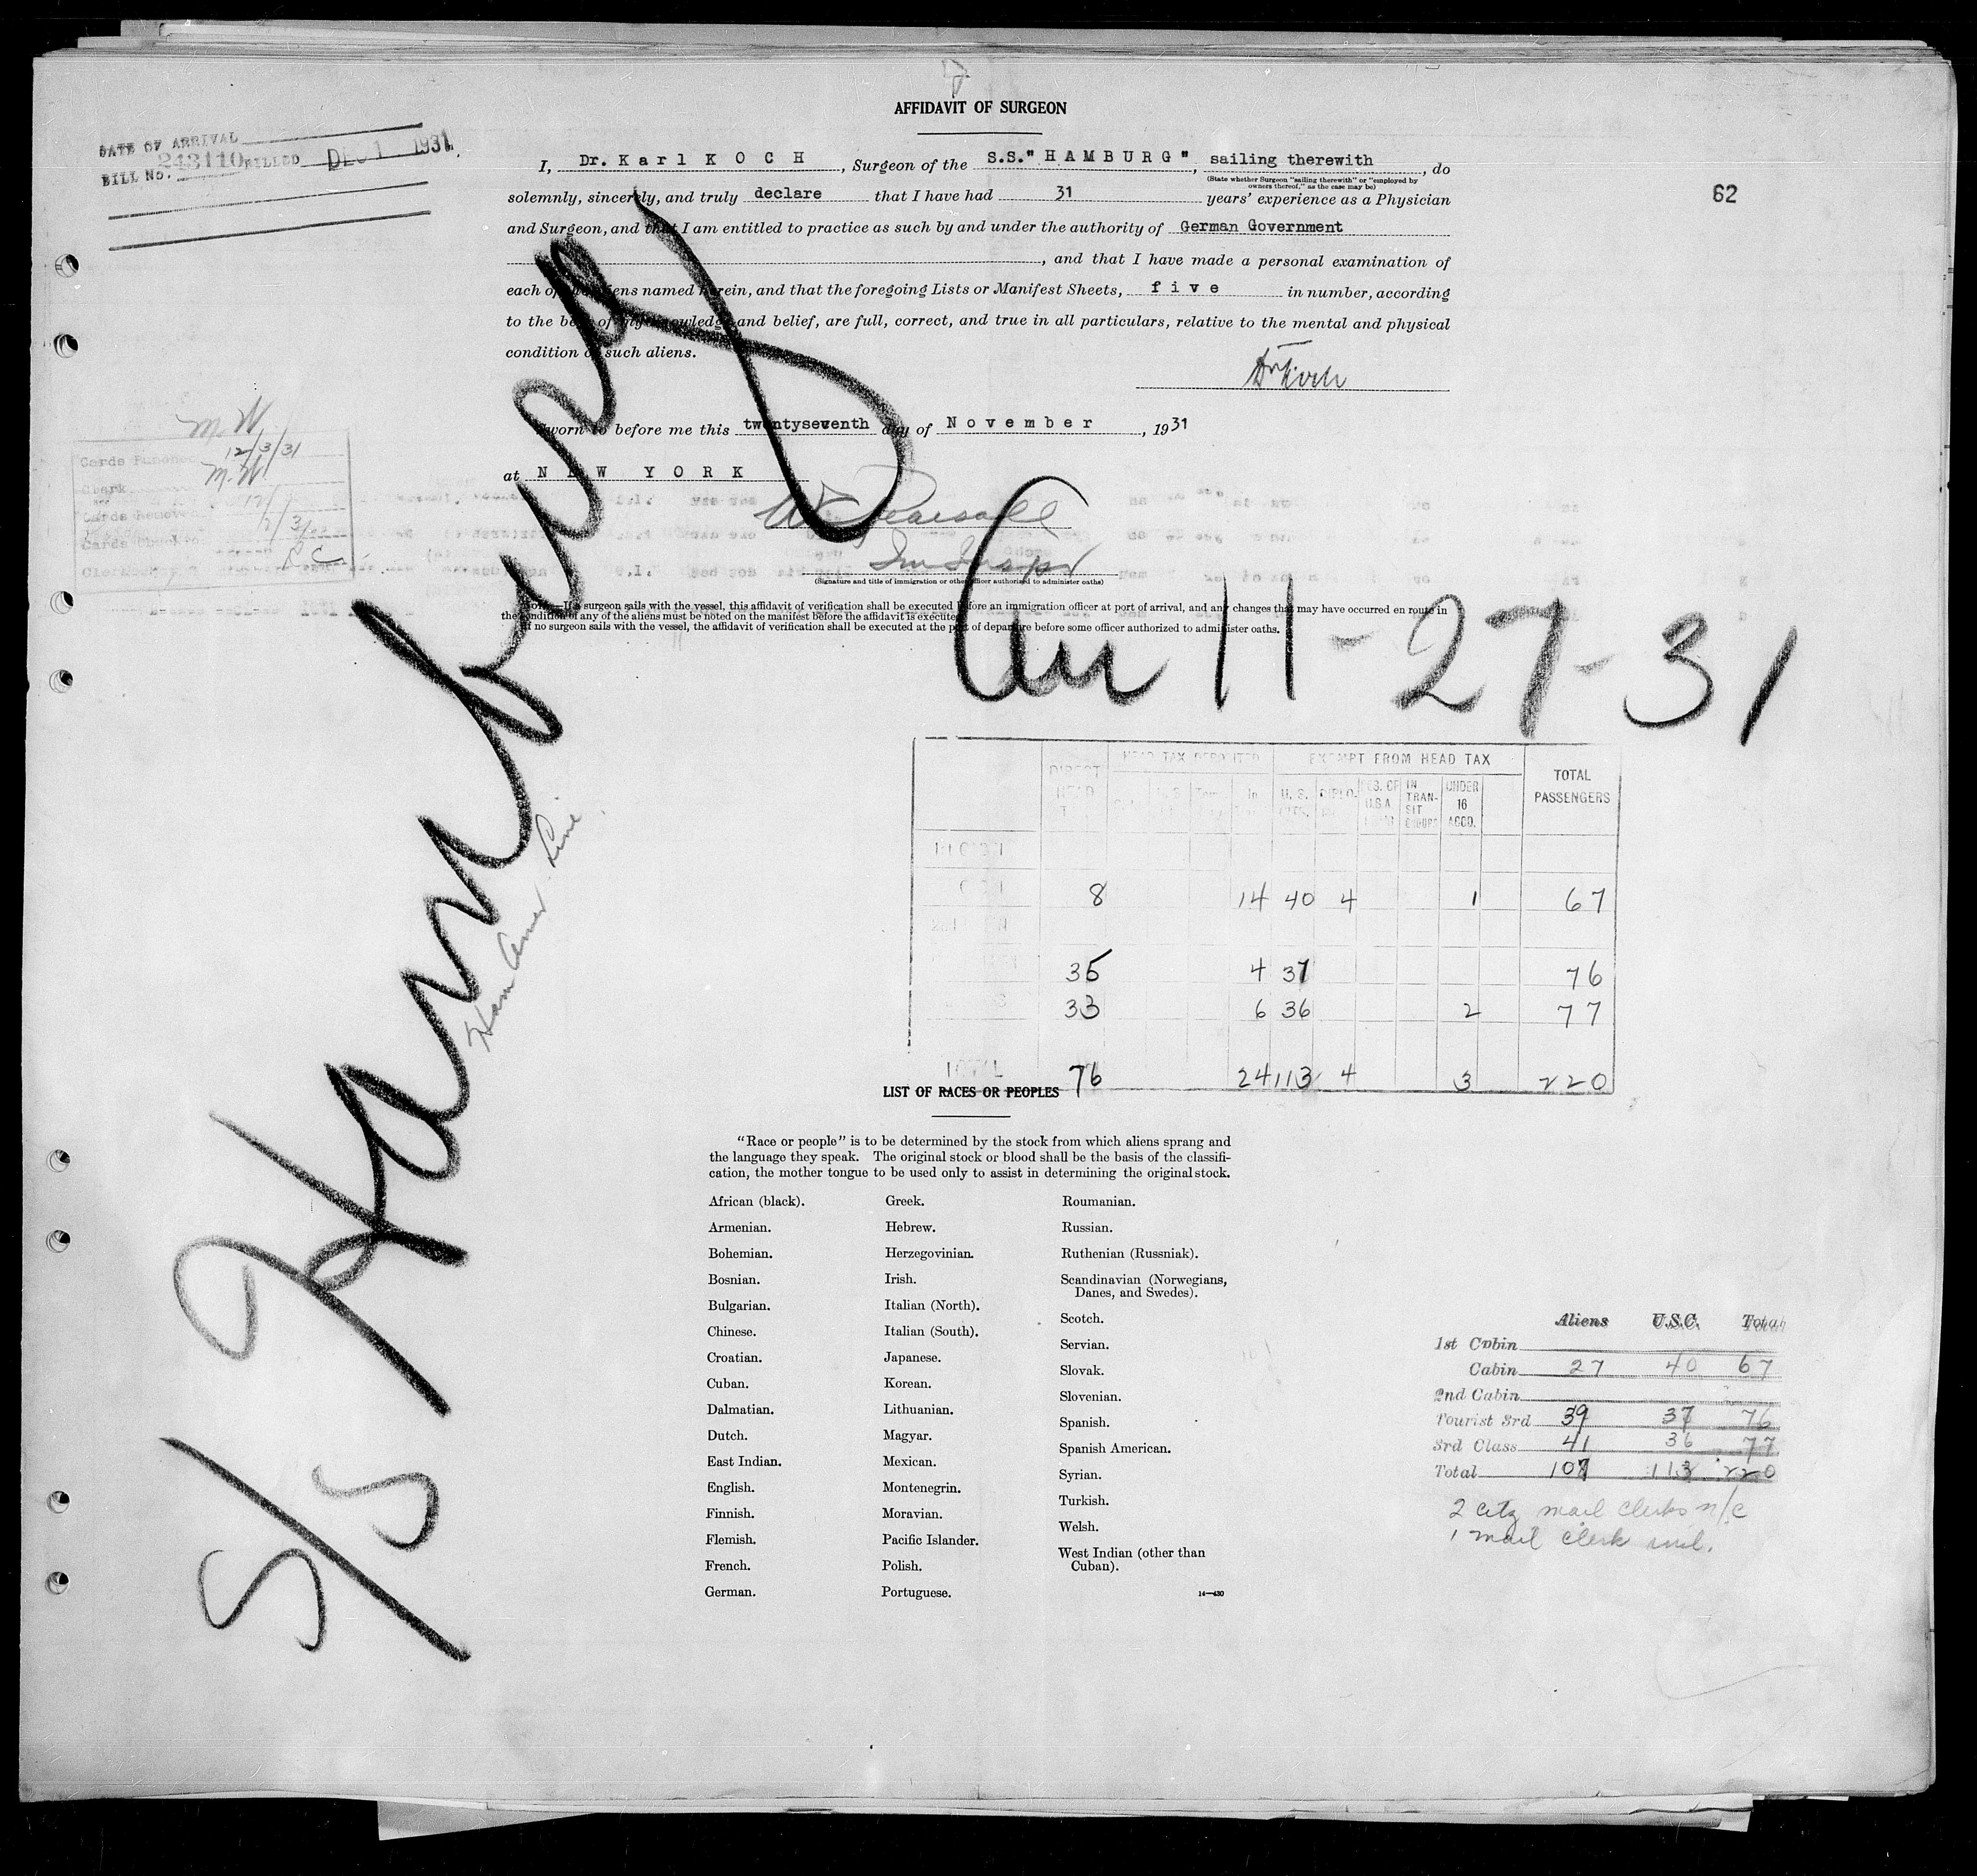 AFFIDAVIT OF SURGEON
DATE OF ARRIVAL
BILL No. 243110 BILLED DEC 1 1931
62
I, Dr. Karl KOCH, Surgeon of the S.S."HAMBURG", sailing therewith, do
(State whether Surgeon "sailing therewith" or "employed by
owners thereof," as the case may be)
solemnly, sincerely, and truly declare that I have had 31 years' experience as a Physician
and Surgeon, and that I am entitled to practice as such by and under the authority of German Government
, and that I have made a personal examination of
each of the aliens named herein, and that the foregoing Lists or Manifest Sheets, five in number, according
to the best of my knowledge and belief, are full, correct, and true in all particulars, relative to the mental and physical
condition of such aliens.
Dr Koch
Sworn to before me this twentyseventh day of November, 1931
at NEW YORK
Pearsall
Im Inspr
(Signature and title of immigration or other officer authorized to administer oaths)
NOTE.—If a surgeon sails with the vessel, this affidavit of verification shall be executed before an immigration officer at port of arrival, and any changes that may have occurred en route in
the condition of any of the aliens must be noted on the manifest before the affidavit is executed.
If no surgeon sails with the vessel, the affidavit of verification shall be executed at the port of departure before some officer authorized to administer oaths.
M.W.
12/3/31
Cards Punched
M.W.
Clerk
Cards Removed
S/S Hamburg
Ham Amer Line
Arr 11-27-31
DIRECT HEAD HEAD TAX DEPOSITED EXEMPT FROM HEAD TAX TOTAL PASSENGERS
U.S. DIPLO. RES. OF U.S.A. IN TRANSIT GROUPS UNDER 16 ACCD.
8 14 40 4 1 67
35 4 37 76
33 6 36 2 77
TOTAL 76 24 113 4 3 220
LIST OF RACES OR PEOPLES
"Race or people" is to be determined by the stock from which aliens sprang and
the language they speak. The original stock or blood shall be the basis of the classifi-
cation, the mother tongue to be used only to assist in determining the original stock.
African (black).
Armenian.
Bohemian.
Bosnian.
Bulgarian.
Chinese.
Croatian.
Cuban.
Dalmatian.
Dutch.
East Indian.
English.
Finnish.
Flemish.
French.
German.
Greek.
Hebrew.
Herzegovinian.
Irish.
Italian (North).
Italian (South).
Japanese.
Korean.
Lithuanian.
Magyar.
Mexican.
Montenegrin.
Moravian.
Pacific Islander.
Polish.
Portuguese.
Roumanian.
Russian.
Ruthenian (Russniak).
Scandinavian (Norwegians,
Danes, and Swedes).
Scotch.
Servian.
Slovak.
Slovenian.
Spanish.
Spanish American.
Syrian.
Turkish.
Welsh.
West Indian (other than
Cuban).
14—430
Aliens U.S.C. Total
1st Cabin
Cabin 27 40 67
2nd Cabin
Tourist 3rd 39 37 76
3rd Class 41 36 77
Total 107 113 220
2 citz mail clerks n/c
1 mail clerk